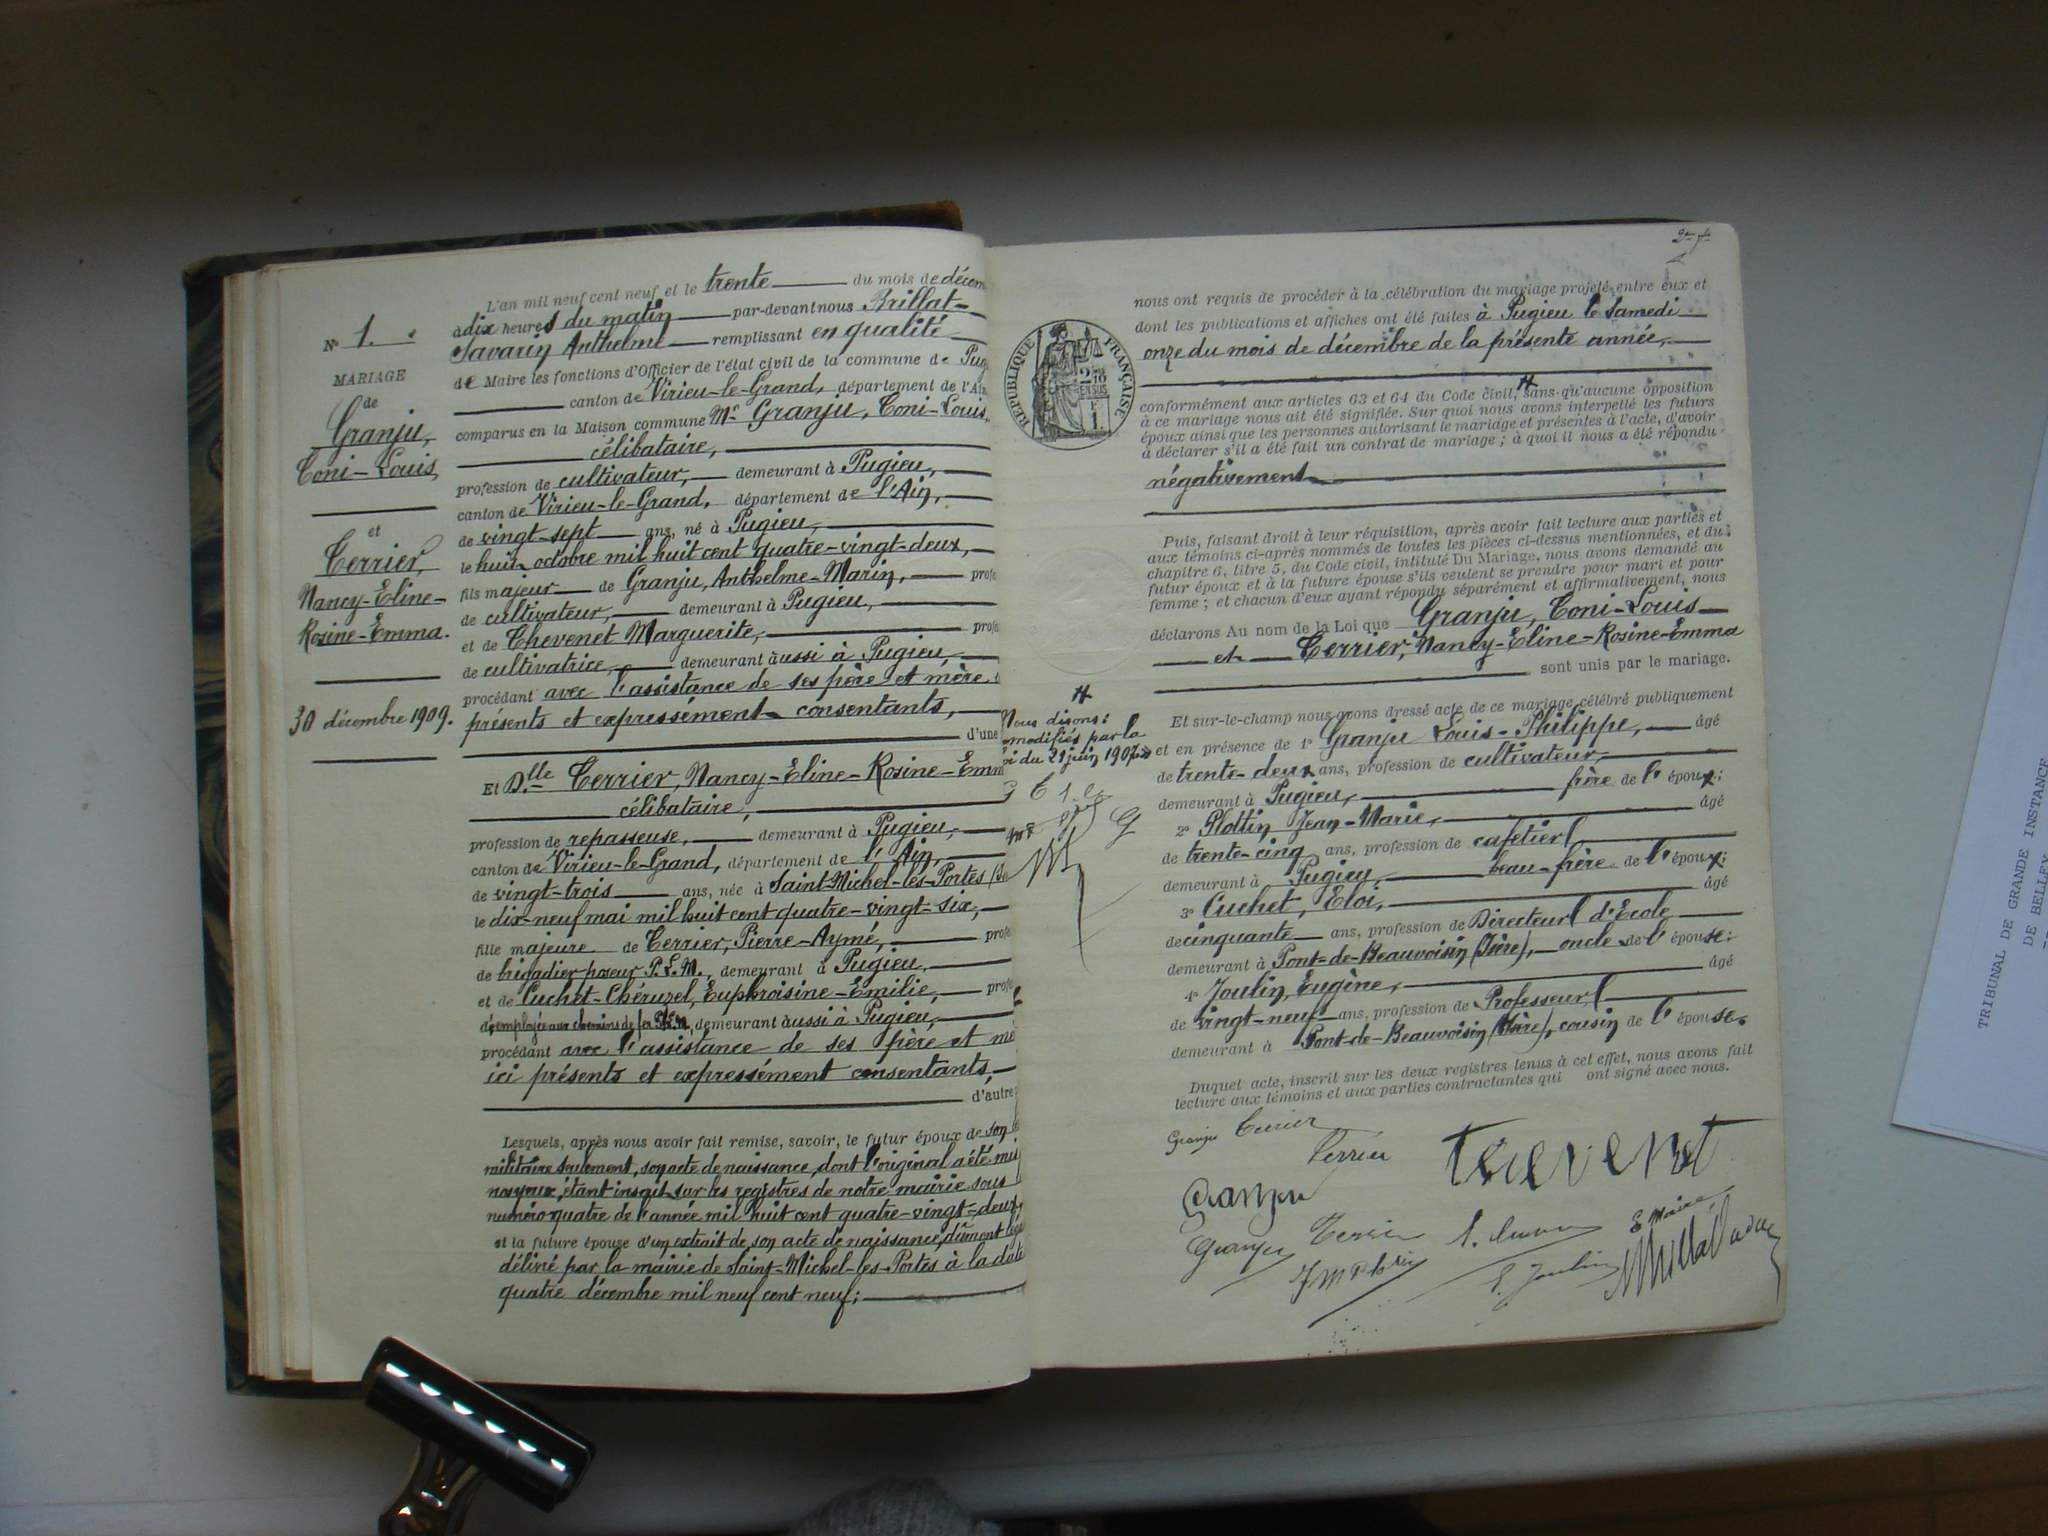 N° 1.
MARIAGE
de
Granju,
Toni-Louis,
et
Terrier,
Nancy-Eline-
Rosine-Emma.
30 décembre 1909.
L'an mil neuf cent neuf et le trente du mois de décem
à dix heures du matin par-devant nous Brillat-
Savarin Anthelme remplissant en qualité
de Maire les fonctions d'Officier de l'état civil de la commune de Pug
canton de Virieu-le-Grand, département de l'Ai
comparus en la Maison commune Mr Granju, Toni-Louis,
célibataire,
profession de cultivateur, demeurant à Pugieu,
canton de Virieu-le-Grand, département de l'Ain,
de vingt-sept ans, né à Pugieu,
le huit octobre mil huit cent quatre-vingt-deux,
fils majeur de Granju, Anthelme-Marin, profe
de cultivateur, demeurant à Pugieu,
et de Chevenet Marguerite, profe
de cultivatrice, demeurant aussi à Pugieu,
procédant avec l'assistance de ses père et mère
présents et expressément consentants,
d'une
Et Dlle Terrier, Nancy-Eline-Rosine-Emm
célibataire,
profession de repasseuse, demeurant à Pugieu,
canton de Virieu-le-Grand, département de l'Ain,
de vingt-trois ans, née à Saint-Michel-les-Portes
le dix-neuf mai mil huit cent quatre-vingt-six,
fille majeure de Terrier, Pierre-Aymé, profe
de brigadier poseur P.L.M., demeurant à Pugieu,
et de Cuchet-Chéruzel, Euphroisine-Emilie, profe
d'employée aux chemins de fer demeurant aussi à Pugieu,
procédant avec l'assistance de ses père et mè
ici présents et expressément consentants,
d'autre
Lesquels, après nous avoir fait remise, savoir, le futur époux de son
militaire seulement, son acte de naissance, dont l'original a été mis
nos yeux, étant inscrit sur les registres de notre mairie sous
numéro quatre de l'année mil huit cent quatre-vingt-deux,
et la future épouse d'un extrait de son acte de naissance, dûment
délivré par la mairie de Saint-Michel-les-Portes à la date
quatre décembre mil neuf cent neuf;
nous ont requis de procéder à la célébration du mariage projeté entre eux et
dont les publications et affiches ont été faites à Pugieu le Samedi
onze du mois de décembre de la présente année,
RÉPUBLIQUE FRANÇAISE
conformément aux articles 63 et 64 du Code civil, sans qu'aucune opposition
à ce mariage nous ait été signifiée. Sur quoi nous avons interpellé les futurs
époux ainsi que les personnes autorisant le mariage et présentes à l'acte, d'avoir
à déclarer s'il a été fait un contrat de mariage ; à quoi il nous a été répondu
négativement
Puis, faisant droit à leur réquisition, après avoir fait lecture aux parties et
aux témoins ci-après nommés de toutes les pièces ci-dessus mentionnées, et du
chapitre 6, titre 5, du Code civil, intitulé Du Mariage, nous avons demandé au
futur époux et à la future épouse s'ils veulent se prendre pour mari et pour
femme ; et chacun d'eux ayant répondu séparément et affirmativement, nous
déclarons Au nom de la Loi que Granju, Toni-Louis
et Terrier, Nancy-Eline-Rosine-Emma
sont unis par le mariage.
Nous disons:
modifiés par la
loi du 21 juin 1907
Et sur-le-champ nous avons dressé acte de ce mariage célébré publiquement
et en présence de 1° Granju Louis-Philippe, âgé
de trente-deux ans, profession de cultivateur,
demeurant à Pugieu, frère de l'époux;
2° Plottin Jean-Marie, âgé
de trente-cinq ans, profession de cafetier
demeurant à Pugieu, beau-frère de l'époux;
3° Cuchet, Eloi, âgé
de cinquante ans, profession de Directeur d'Ecole
demeurant à Pont-de-Beauvoisin (Isère), oncle de l'épouse;
4° Joulin, Eugène, âgé
de vingt-neuf ans, profession de Professeur
demeurant à Pont-de-Beauvoisin (Isère), cousin de l'épouse.
Duquel acte, inscrit sur les deux registres tenus à cet effet, nous avons fait
lecture aux témoins et aux parties contractantes qui ont signé avec nous.
Granju Terrier
Terrier
Granju
Granju Terrier
E. Joulin
TRIBUNAL DE GRANDE INSTANCE
DE BELLEY